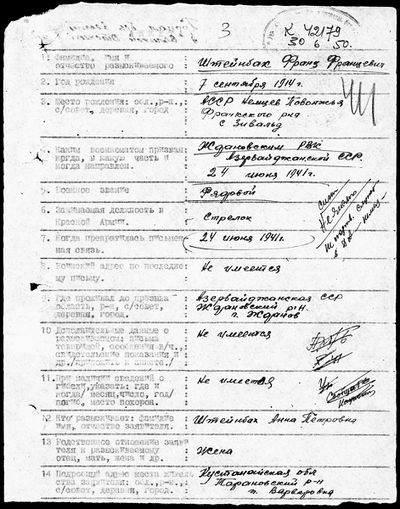 3
К 42179
30 6 50.
1. Фамилия, имя и
отчество разыскиваемого
Штейнбах Франц Францевич
2. Год рождения
7 сентября 1914 г.
3. Место рождения: обл., р-н,
с/совет, деревня, город
АССР Немцев Поволжья
с Зивальд
4. Каким военкоматом призван
когда, в какую часть и
когда направлен.
Ждановским РВК
Азербайджанской ССР
24 июня 1941г
5. Военное звание
Рядовой
6. Занимаемая должность в
Красной Армии.
Стрелок
7. Когда прекратилась письмен-
ная связь.
24 июня 1941г.
8. Воинский адрес по последне-
му письму.
Не имеется
9. Где проживал до призыва -
область, р-н, с/совет,
деревня, город.
Азербайджанская ССР
Ждановский р-н.
г. Жданов
10 Дополнительные данные о
разыскиваемом: письма
товарищей, сообщения в/ч.
Не имеется
11. При наличии сведений о
гибели, указать: где
когда/ месяц, число, год/
место похорон.
Не имеется
12. Кто разыскивает: фамилия
имя, отчество заявителя.
Штейнбах Анна Петровна
13 Родственное отношение заяви
теля к разыскиваемому
отец, мать, жена и др.
Жена
14 Подробный адрес места житель
ства заявителя: обл., р-н,
с/совет, деревня, город.
Кустанайская обл
Тарановский р-н
п. Варваровка